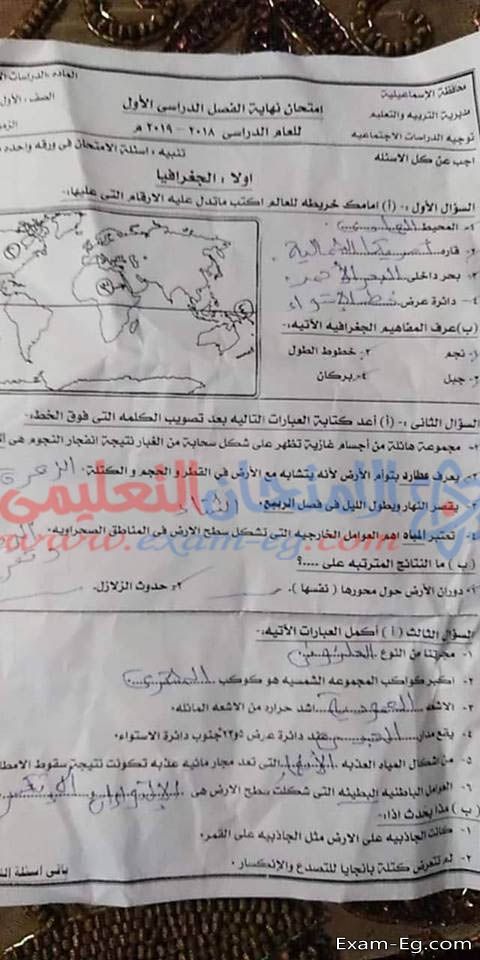 محافظة الإسماعيلية
مديرية التربيه والتعليم
توجيه الدراسات الاجتماعيه
امتحان نهاية الفصل الدراسى الأول
للعام الدراسى ٢٠١٨ - ٢٠١٩ م
الماده: الدراسات
الصف: الأول
اجب عن كل الاسئله
تنبيه: اسئلة الامتحان فى ورقه واحده
اولا: الجغرافيا
السؤال الأول:- (أ) امامك خريطه للعالم اكتب ماتدل عليه الارقام التى عليها:
١- المحيط
٢- قاره أمريكا الشمالية
٣- بحر داخلى البحر الأحمر
٤- دائرة عرض خط الاستواء
(ب) عرف المفاهيم الجغرافيه الآتيه:
١- نجم ٢- خطوط الطول
٣- جبل ٤- بركان
السؤال الثانى:- (أ) أعد كتابة العبارات التاليه بعد تصويب الكلمه التى فوق الخط:
١- مجموعة هائلة من أجسام غازية تظهر على شكل سحابة من الغبار نتيجة انفجار النجوم هى
٢- يعرف عطارد بتوأم الأرض لأنه يتشابه مع الأرض في القطر و الحجم و الكتلة. الزهرة
٣- يقصر النهار ويطول الليل فى فصل الربيع. الشتاء
٤- تعتبر المياه اهم العوامل الخارجيه التى تشكل سطح الارض فى المناطق الصحراويه.
(ب) ما النتائج المترتبه على ....؟
١- دوران الأرض حول محورها (نفسها). ٢- حدوث الزلازل.
السؤال الثالث (أ) أكمل العبارات الآتيه:
١- مجرتنا من النوع الحلزونى
٢- اكبر كواكب المجموعه الشمسيه هو كوكب المشترى
٣- الاشعه العمودية اشد حراره من الاشعه المائله.
٤- يقع مدار الجدى عند دائرة عرض ٢٣.٥ جنوب دائرة الاستواء.
٥- من أشكال المياه العذبه الأنهار التى تعد مجار مائيه عذبه تكونت نتيجة سقوط الامطار
٦- العوامل الباطنيه البطيئه التى شكلت سطح الارض هى الالتواءات
(ب) ماذا يحدث اذا:
١- كانت الجاذبيه على الارض مثل الجاذبيه على القمر.
٢- لم تتعرض كتلة بانجايا للتصدع والإنكسار.
باقى اسئلة
الامتحان التعليمى
www.exam-eg.com
Exam-Eg.com